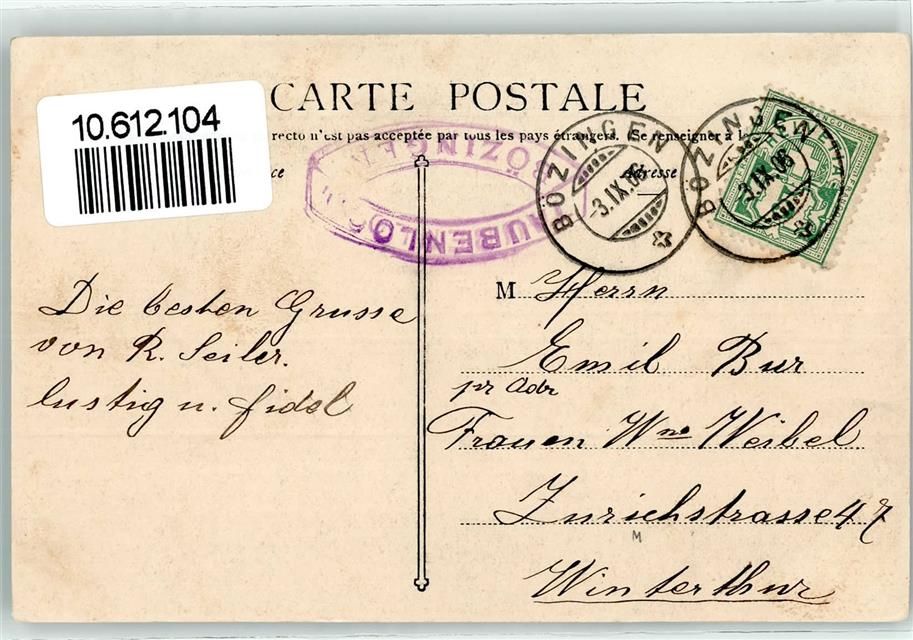 CARTE POSTALE
10.612.104
recto n'est pas acceptée par tous les pays étrangers. (Se renseigner à la
Adresse
BÖZINGEN
TAUBENLOCH
BÖZINGEN
-3.IX.06
BÖZINGEN
-3.IX.06
Die besten Grusse
von R. Seiler.
lustig u. fidel
M Herrn
Emil Bur
pr Adr
Frauen Wwe Weibel
Zurichstrasse 47
M
Winterthur